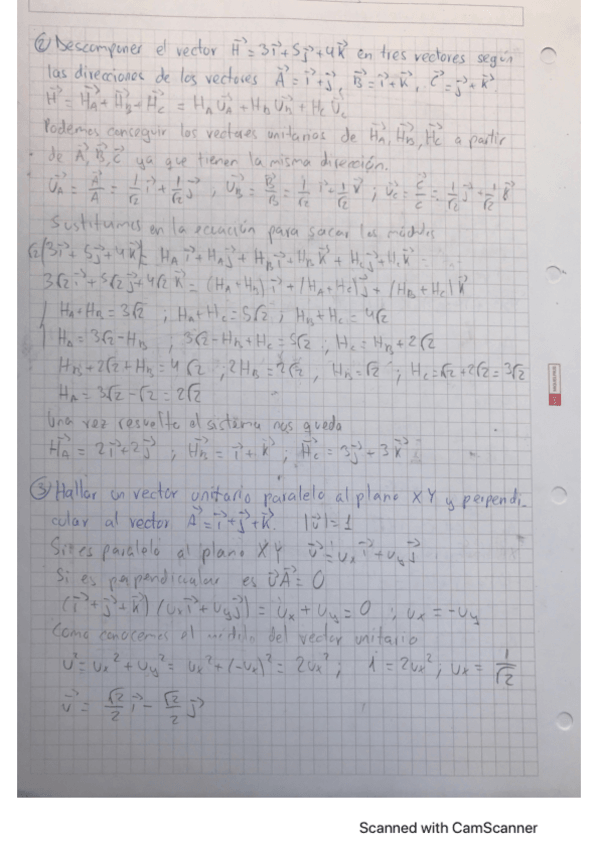 ② Descomponer el vector H⃗ = 3i⃗ + 5j⃗ + 4k⃗ en tres vectores según
las direcciones de los vectores A⃗ = i⃗ + j⃗, B⃗ = i⃗ + k⃗, C⃗ = j⃗ + k⃗.
H⃗ = H⃗_A + H⃗_B + H⃗_C = H_A U⃗_A + H_B U⃗_B + H_C U⃗_C
Podemos conseguir los vectores unitarios de H⃗_A, H⃗_B, H⃗_C a partir
de A⃗, B⃗, C⃗ ya que tienen la misma dirección.
U⃗_A = A⃗/A = 1/√2 i⃗ + 1/√2 j⃗ ; U⃗_B = B⃗/B = 1/√2 i⃗ + 1/√2 k⃗ ; U⃗_C = C⃗/C = 1/√2 j⃗ + 1/√2 k⃗
Sustituimos en la ecuación para sacar los módulos
√2(3i⃗ + 5j⃗ + 4k⃗) = H_A i⃗ + H_A j⃗ + H_B i⃗ + H_B k⃗ + H_C j⃗ + H_C k⃗ =
3√2 i⃗ + 5√2 j⃗ + 4√2 k⃗ = (H_A + H_B) i⃗ + (H_A + H_C) j⃗ + (H_B + H_C) k⃗
H_A + H_B = 3√2 ; H_A + H_C = 5√2 ; H_B + H_C = 4√2
H_A = 3√2 - H_B ; 3√2 - H_B + H_C = 5√2 ; H_C = H_B + 2√2
H_B + 2√2 + H_B = 4√2 ; 2H_B = 2√2 , H_B = √2 ; H_C = √2 + 2√2 = 3√2
H_A = 3√2 - √2 = 2√2
Una vez resuelto el sistema nos queda
H⃗_A = 2i⃗ + 2j⃗ ; H⃗_B = i⃗ + k⃗ ; H⃗_C = 3j⃗ + 3k⃗
③ Hallar un vector unitario paralelo al plano XY y perpendi-
cular al vector A⃗ = i⃗ + j⃗ + k⃗. |u⃗| = 1
Si es paralelo al plano XY u⃗ = u_x i⃗ + u_y j⃗
Si es perpendicular es u⃗A⃗ = 0
(i⃗ + j⃗ + k⃗)(u_x i⃗ + u_y j⃗) = u_x + u_y = 0 ; u_x = -u_y
Como conocemos el módulo del vector unitario
u² = u_x² + u_y² = u_x² + (-u_x)² = 2u_x² ; 1 = 2u_x² ; u_x = 1/√2
u⃗ = √2/2 i⃗ - √2/2 j⃗
Scanned with CamScanner